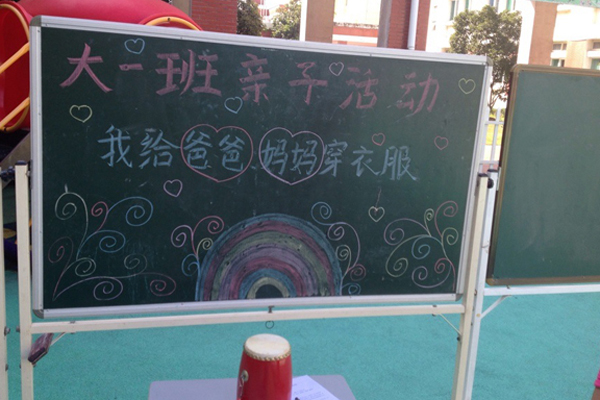 大一班亲子活动
我给爸爸妈妈穿衣服